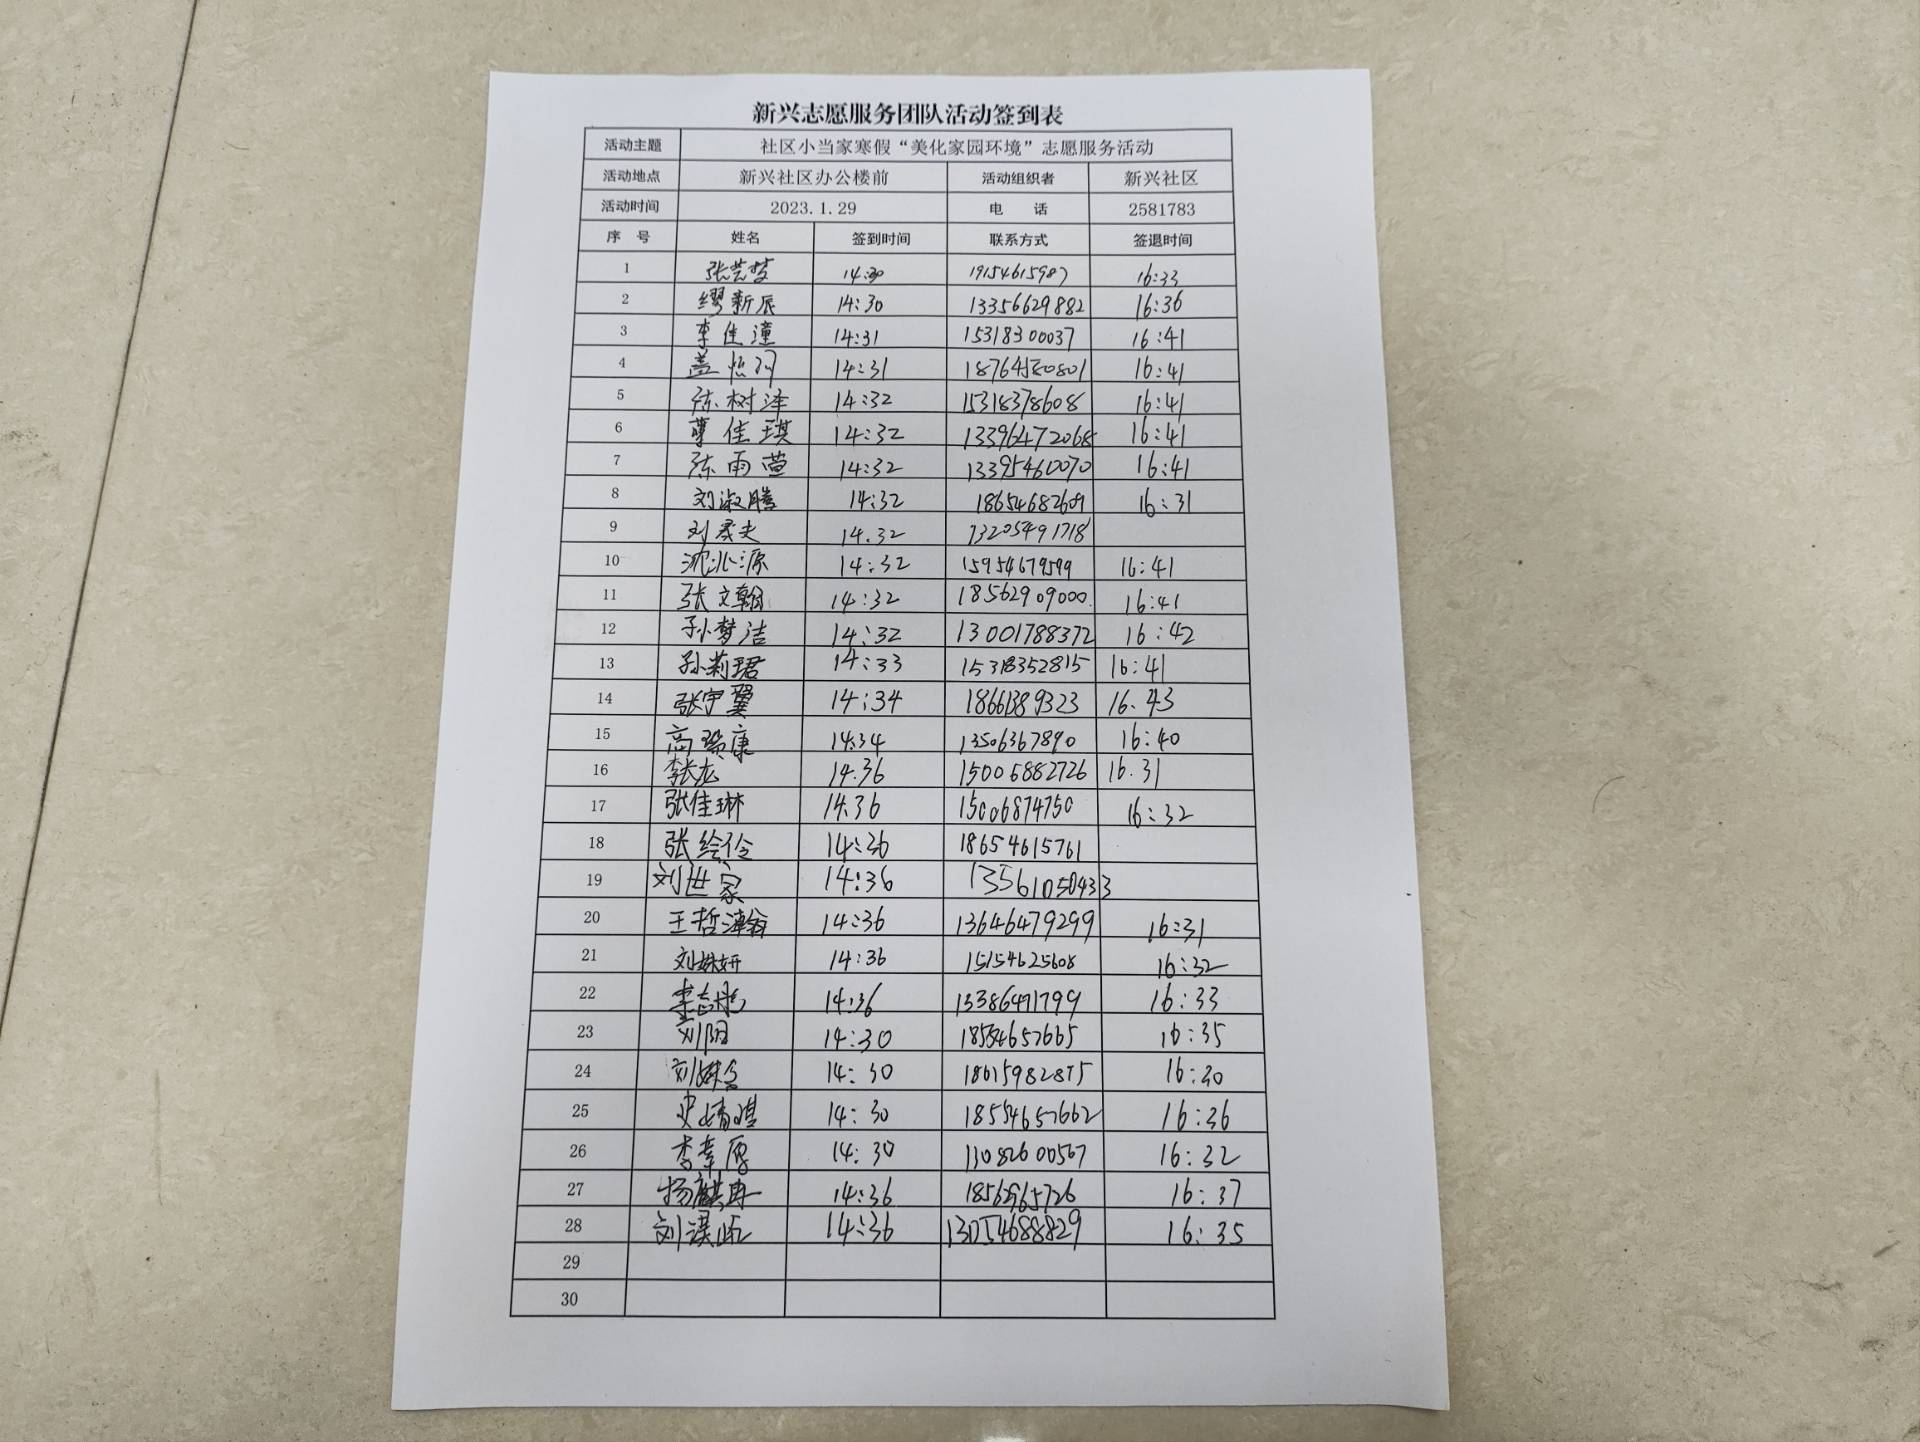 新兴志愿服务团队活动签到表
活动主题 社区小当家寒假“美化家园环境”志愿服务活动
活动地点 新兴社区办公楼前 活动组织者 新兴社区
活动时间 2023.1.29 电 话 2581783
序 号 姓名 签到时间 联系方式 签退时间
1 张芸梦 14:30 19154615987 16:33
2 缪新辰 14:30 13356629882 16:36
3 李佳潼 14:31 15318300037 16:41
4 盖 14:31 16:41
5 陈树泽 14:32 15318378608 16:41
6 佳琪 14:32 13396472068 16:41
7 陈雨萱 14:32 13395461070 16:41
8 刘淑腾 14:32 18654682601 16:31
9 刘 14.32 13205491718
10 沈沁源 14:32 15954679599 16:41
11 张文翰 14:32 18562909000 16:41
12 孙梦洁 14:32 13001788372 16:42
13 孙莉珺 14:33 15318352815 16:41
14 张宇翼 14:34 18661389323 16.43
15 高瑞康 14:34 13506367890 16:40
16 李张龙 14.36 15006882726 16.31
17 张佳琳 14.36 15006874750 16:32
18 张绘伶 14:36 18654615761
19 刘世家 14:36 13561050433
20 王哲瀚 14:36 13646479299 16:31
21 刘姝妍 14:36 15154625608 16:32
22 李志 14:36 16:33
23 刘阳 14:30 16:35
24 刘姝含 14:30 16:30
25 史婧琪 14:30 18554657662 16:36
26 李 14:30 16:32
27 杨麒冉 14:36 18562965726 16:37
28 刘 14:36 13054688829 16:35
29
30